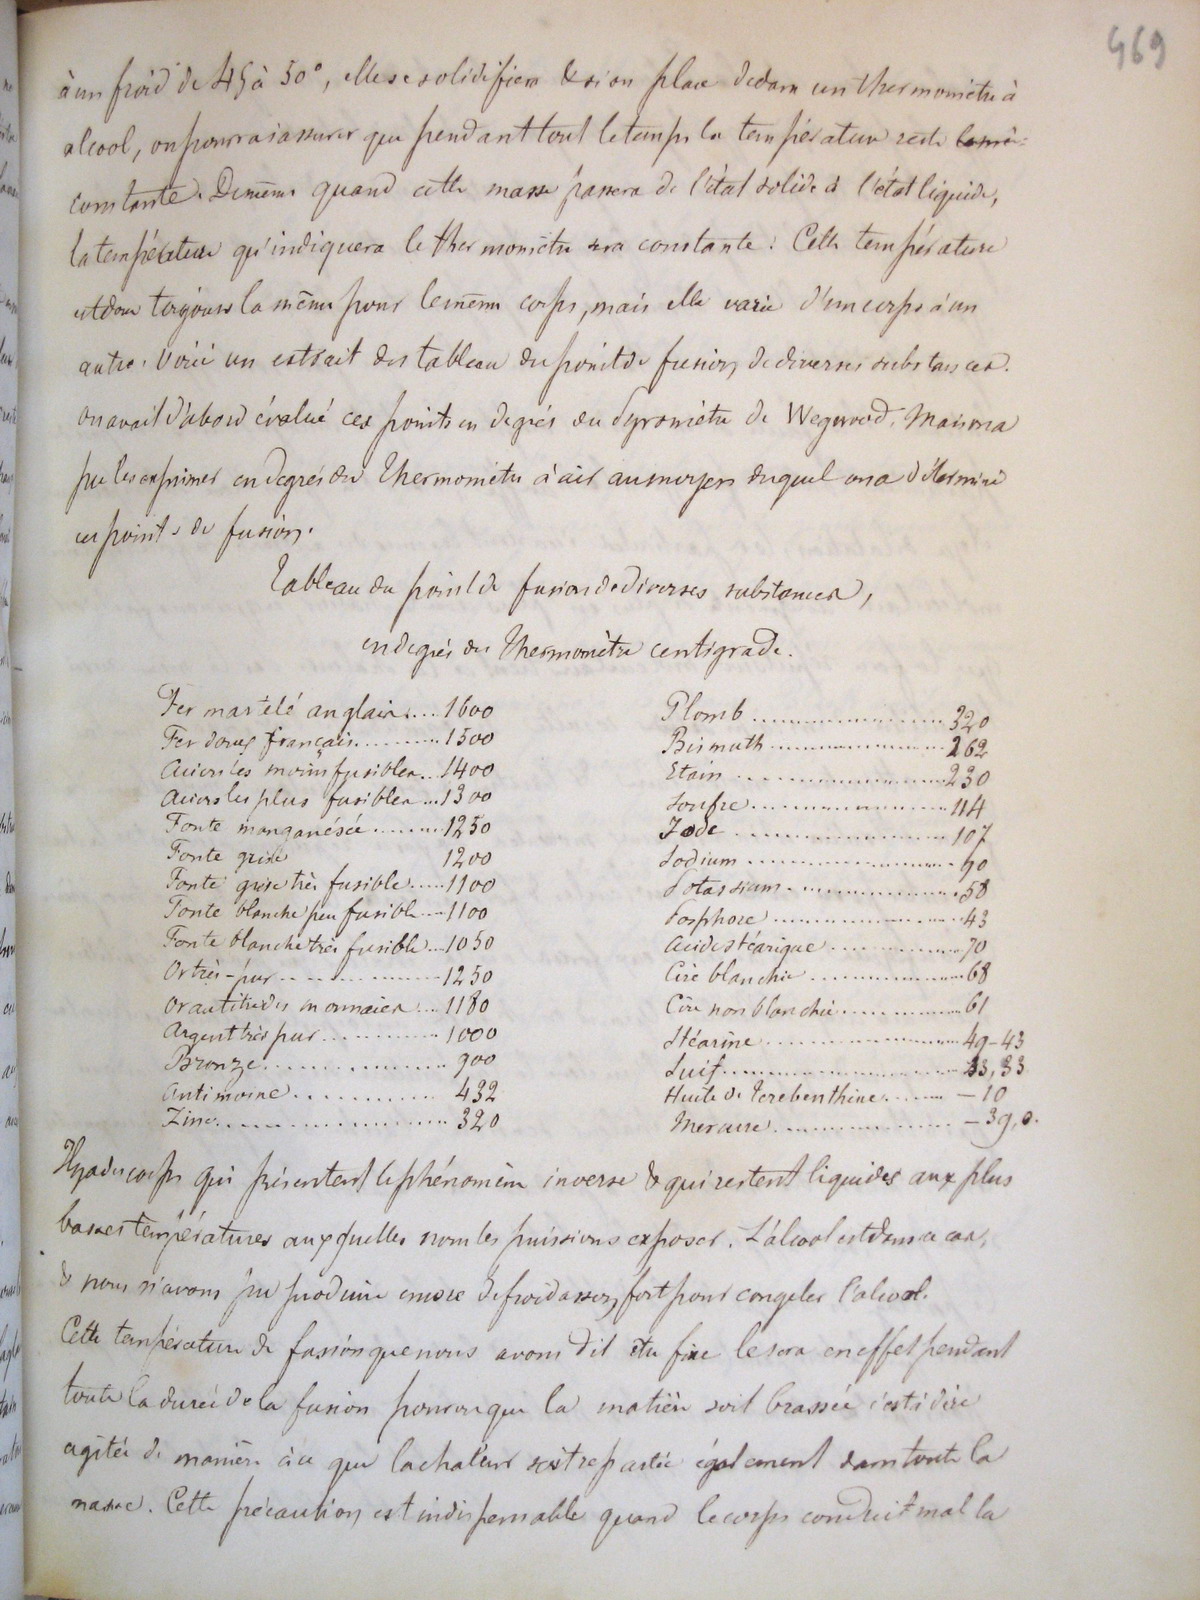 469
à un froid de 45 à 50°, elle se solidifiera & si on place dedans un thermomètre à
alcool, on pourra s'assurer que pendant tout le temps la température reste
constante. De même quand cette masse passera de l'état solide à l'état liquide,
la température qu'indiquera le thermomètre sera constante. Cette température
est donc toujours la même pour le même corps, mais elle varie d'un corps à un
autre. Voici un extrait des tableau du point de fusion de diverses substances.
on avait d'abord évalué ces points en degrés du Pyromètre de Wegwood. Mais on a
pu les exprimer en degrés du thermomètre à air au moyen duquel on a déterminé
ces points de fusion.
Tableau du point de fusion de diverses substances,
en degrés du Thermomètre centigrade.
Fer martelé anglais .... 1600
Fer doux français ......... 1500
Aciers les moins fusibles .. 1400
Aciers les plus fusibles ... 1300
Fonte manganésée ........ 1250
Fonte grise 1200
Fonte grise très fusible ..... 1100
Fonte blanche peu fusible .... 1100
Fonte blanche très fusible ... 1050
Or très-pur ............... 1250
Or au titre des monnaies ... 1180
Argent très pur ............ 1000
Bronze ................ 900
Antimoine ............ 432
Zinc ..................... 320
Plomb ..................... 320
Bismuth ................... 262
Etain ..................... 230
Soufre .................... 114
Iode ..................... 107
Sodium .................... 90
Potassium ................. 58
Posphore .................. 43
Acide stéarique ............ 70
Cire blanchie .............. 68
Cire non blanchie ........... 61
Stéarine ................... 49-43
Suif ....................... 33,33
Huile de Terebenthine ....... -10
Mercure .................. -39,0.
Il y a des corps qui présentent le phénomène inverse & qui restent liquides aux plus
basses températures auxquelles nous les puissions exposer. L'alcool est dans ce cas,
& nous n'avons pu produire encore de froid assez fort pour congeler l'alcool.
Cette température de fusion que nous avons dit être fixe le sera en effet pendant
toute la durée de la fusion pourvu que la matière soit brassée c'est à dire
agitée de manière à ce que la chaleur soit repartie également dans toute la
masse. Cette précaution est indispensable quand le corps conduit mal la